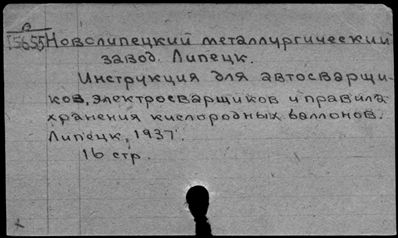 В
15655
Новолипецкий металлургический
завод. Липецк.
Инструкция для автосварщи-
ков, электросварщиков и правила
хранения кислородных баллонов.
Липецк, 1937.
16 стр.